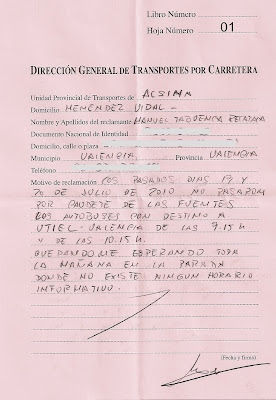 Libro Número
Hoja Número 01
DIRECCIÓN GENERAL DE TRANSPORTES POR CARRETERA
Unidad Provincial de Transportes de ALSINA
Domicilio MENÉNDEZ VIDAL -
Nombre y Apellidos del reclamante MANUEL
Documento Nacional de Identidad
Domicilio, calle o plaza
Municipio VALENCIA Provincia VALENCIA
Teléfono
Motivo de reclamación LOS PASADOS DIAS 19 Y
20 DE JULIO DE 2010 NO PASARON
POR CAUDETE DE LAS FUENTES
LOS AUTOBUSES CON DESTINO A
UTIEL-VALENCIA DE LAS 9.15 h.
Y DE LAS 10.15 h.
QUEDANDOME ESPERANDO TODA
LA MAÑANA EN LA PARADA
DONDE NO EXISTE NINGUN HORARIO
INFORMATIVO.
(Fecha y firma)